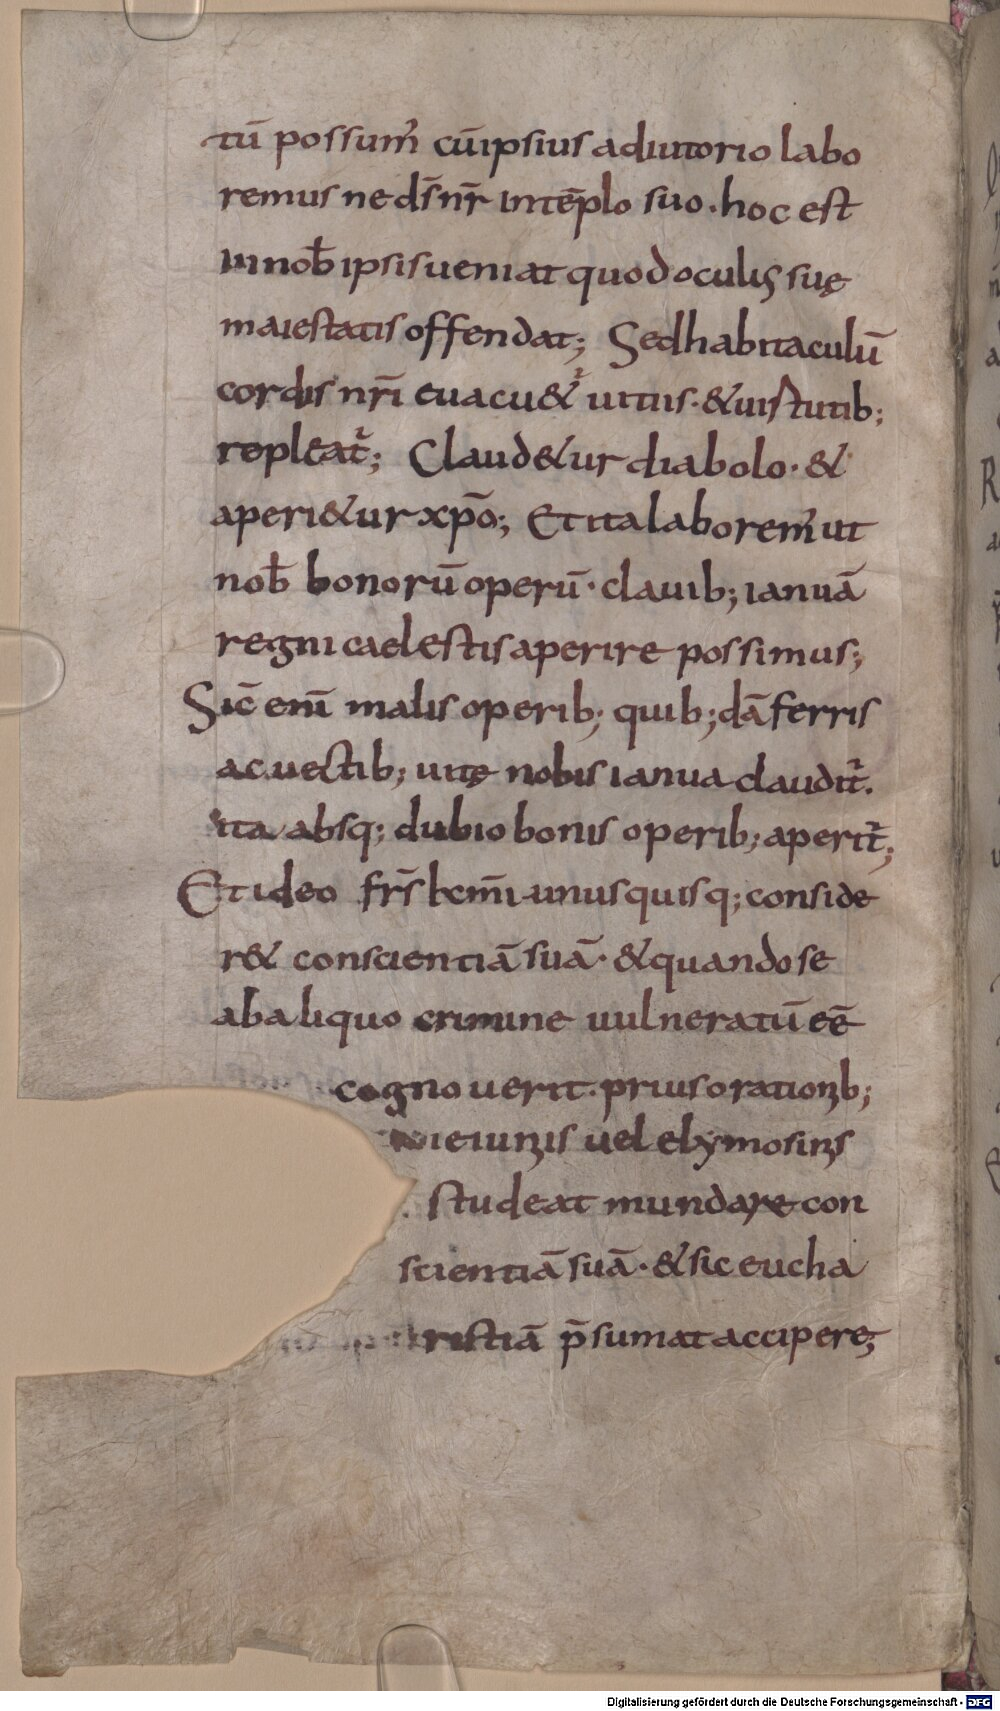 tū possum̄ cū ipsius adiutorio labo
remus ne ds̄ nr̄ in tēplo suo · hoc est
in nob̄ ipsis ueniat quod oculis suę
maiestatis offendat; Sed habitaculū
cordis nr̄i euacu&ᷣ uitiis · & uirtutib;
repleatᷣ; Claud&ur diabolo · &
aperi&ur xp̄o; Et ita laborem̄ ut
nob̄ bonorū operū · clauib; ianuā
regni caelestis aperire possimus;
Sic̄ enī malis operib; quib;dā ferris
ac uectib; uitę nobis ianua clauditᷣ.
ita absq; dubio bonis operib; aperitᷣ;
Et ideo frs̄ kcm̄i unusquisq; conside
r& conscientiā suā · & quando se
ab aliquo crimine uulneratū eē
cognouerit · prius orationib;
ieiuniis uel elymosinis
studeat mundare con
scientiā suā · & sic eucha
ristiā p̄sumat accipere;
Digitalisierung gefördert durch die Deutsche Forschungsgemeinschaft - DFG